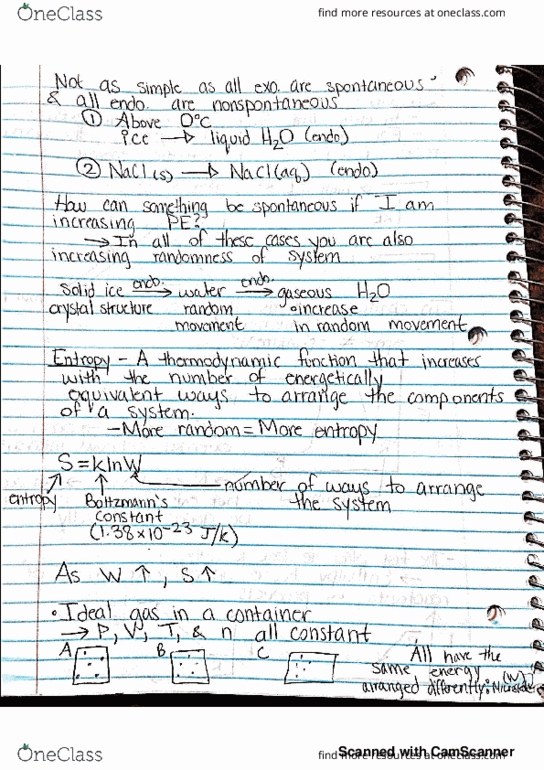 OneClass
find more resources at oneclass.com
Not as simple as all exo. are spontaneous
& all endo. are nonspontaneous
① Above 0°C
ice → liquid H₂O (endo)
② NaCl(s) → NaCl(aq) (endo)
How can something be spontaneous if I am
increasing PE?
→ In all of these cases you are also
increasing randomness of system
endo. endo.
solid ice → water → gaseous H₂O
crystal structure random increase
movement in random movement
Entropy - A thermodynamic function that increases
with the number of energetically
equivalent ways to arrange the components
of a system.
- More random = More entropy
S = klnW
number of ways to arrange
the system
entropy Boltzmann's
constant
(1.38×10⁻²³ J/K)
As W ↑, S ↑
• Ideal gas in a container
→ P, V, T, & n all constant
A B C All have the
same energy
arranged differently: (W)
OneClass
find more resources at oneclass.com
Scanned with CamScanner